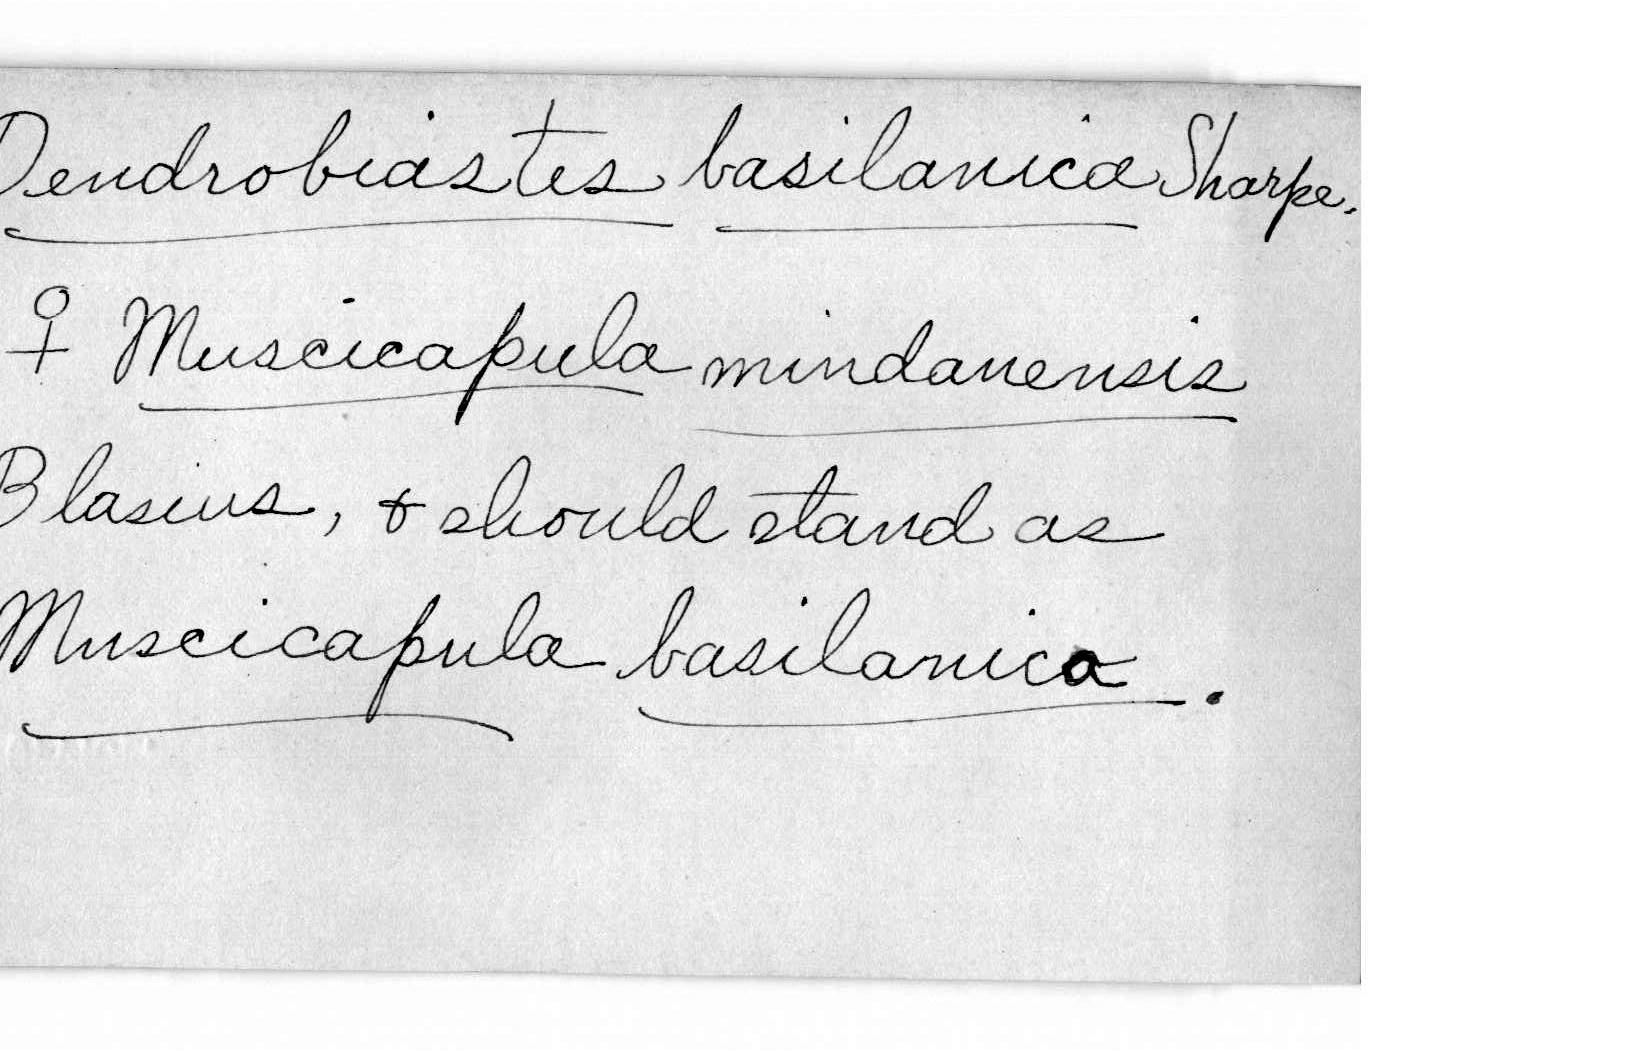 Dendrobiastes basilanica Sharpe.
♀ Muscicapula mindanensis
Blasius, & should stand as
Muscicapula basilanica.